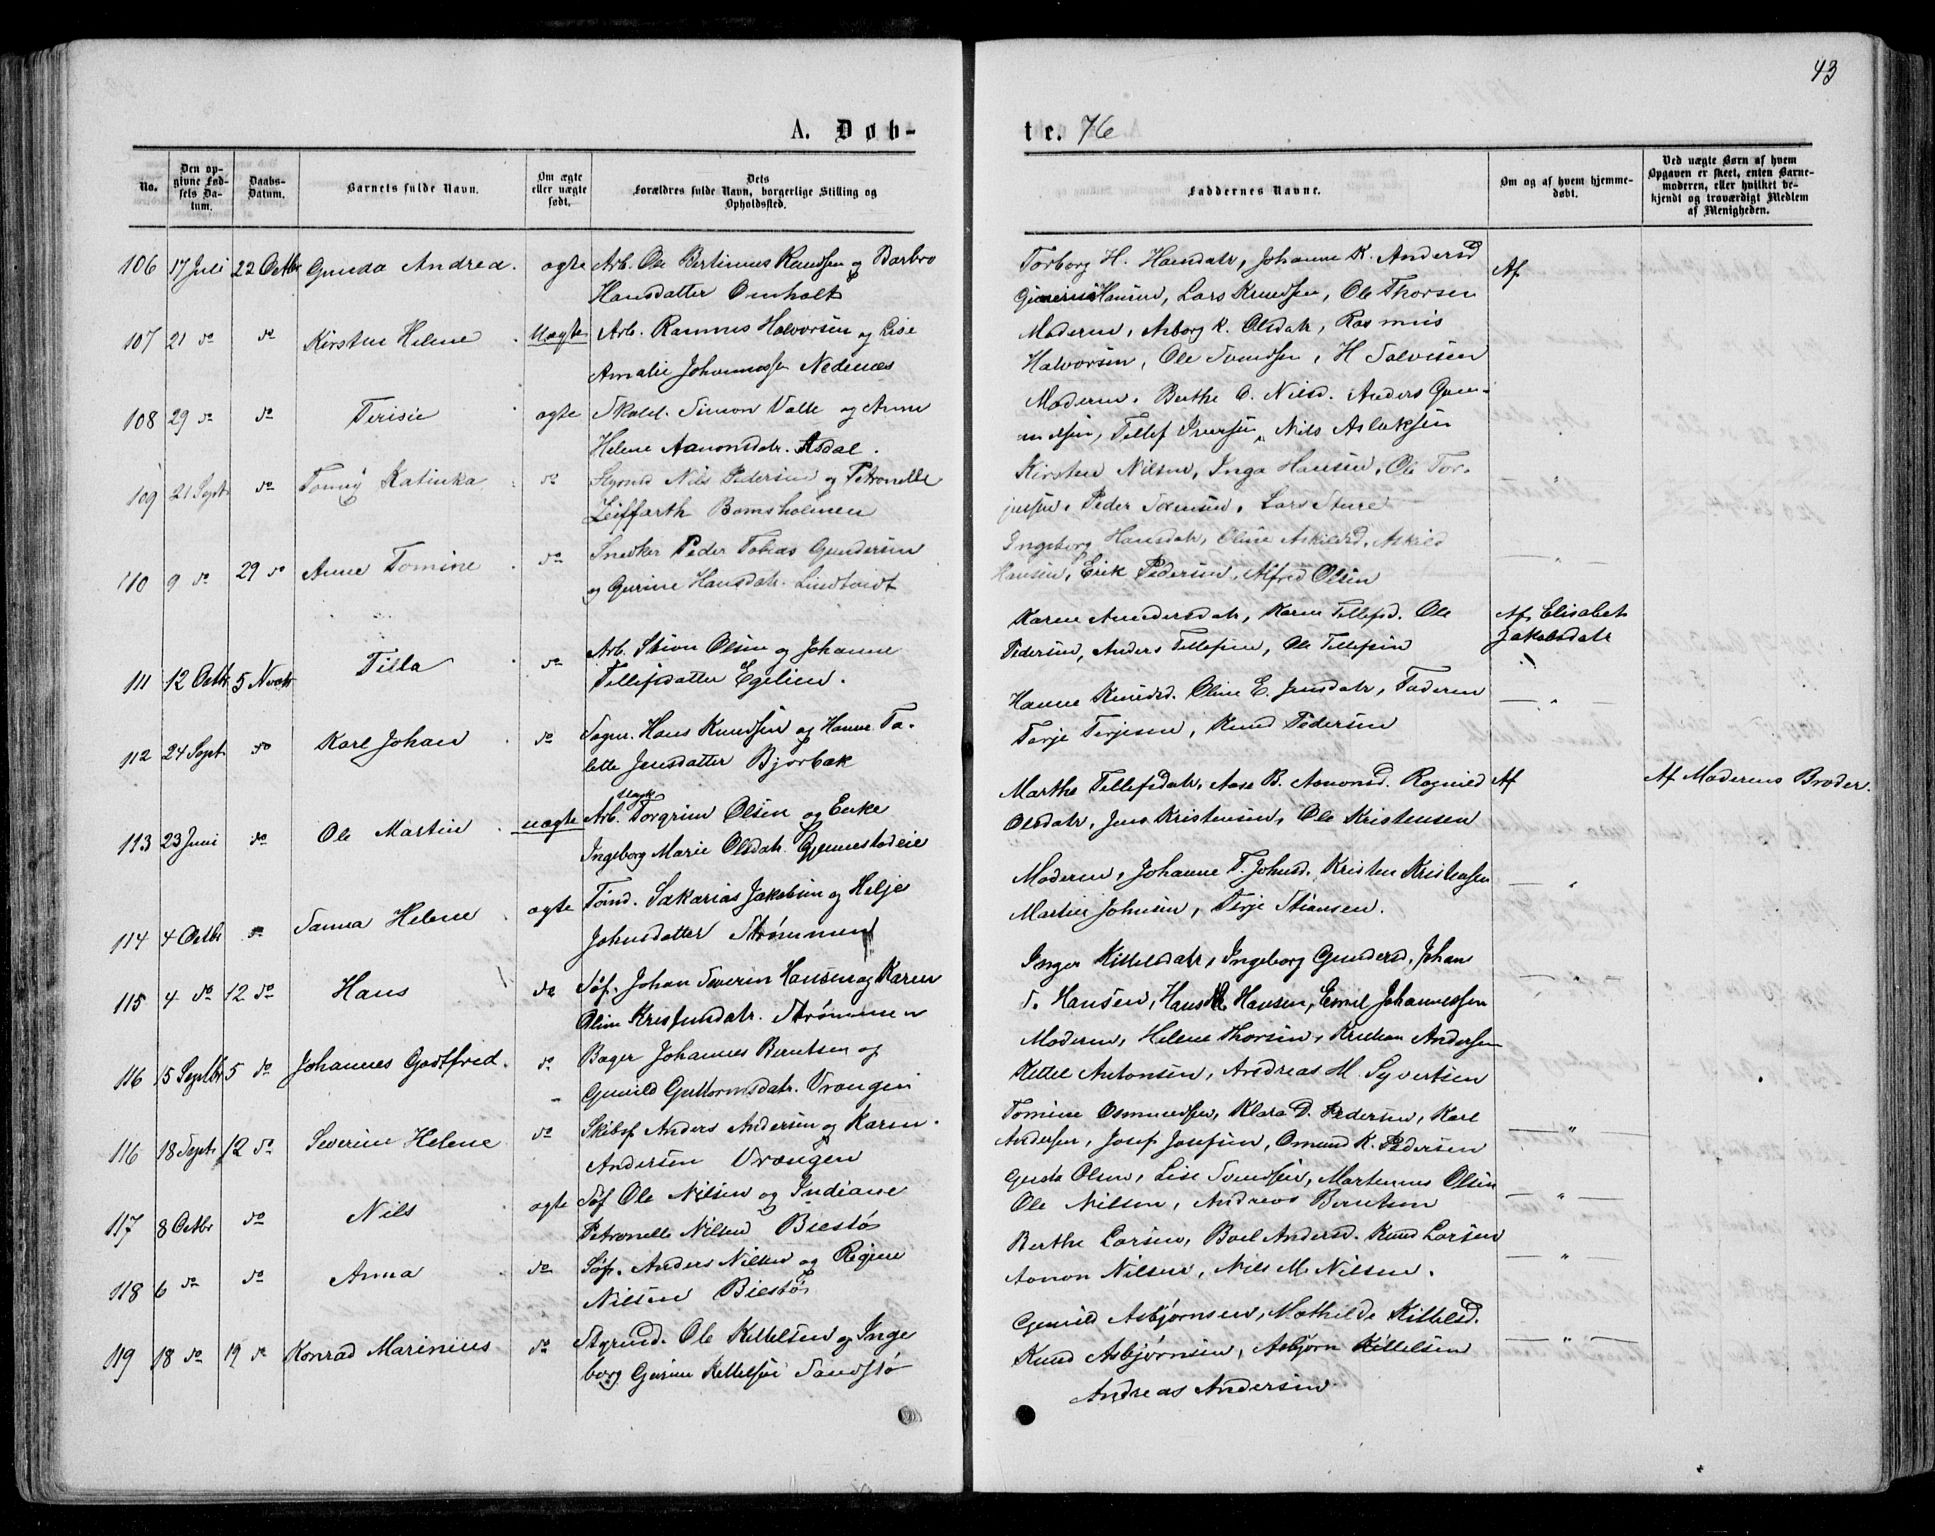 43
A. Døb-
te. 76
No.
Den op-
givne Fød-
sels Da-
tum.
Daabs-
Datum.
Barnets fulde Navn.
Om ægte
eller uægte
født.
Dets
Forældres fulde Navn, borgerlige Stilling og
Opholdssted.
Faddernes Navne.
Om og af hvem hjemme-
døbt.
Ved uægte Børn af hvem
Opgaven er skeet, enten Barne-
moderen, eller hvilket be-
kjendt og troværdigt Medlem
af Menigheden.
106 17 Juli 22 Octbr Gunda Andrea. ægte Arb. Ole Bertinius Knudsen og Barbro
Hansdatter Omholt
Torborg H. Hansdatr, Johanne K. Andersd
Hansen, Lars Knudsen, Ole Thorsen
Af
107 21 do do Kirsten Helene Uægte Arb. Rasmus Halvorsen og Lise
Amalie Johannesse Nedenæs
Moderen, Asborg K. Olsdatr, Rasmus
Halvorsen, Ole Svendsen, H Salvesen
108 29 do do Terisie ægte Skold. Simon Valle og Anne
Helene Aanonsdatr. Asdal.
Moderen, Berthe O. Nilsd. Anders Gun-
dsen, Tellef Iversen, Nils Aslaksen
109 21 Sept do Tonny Katinka do Styrmd Nils Pedersen og Petronelle
Zeiffarth Bomsholmen
Kirsten Nilsen, Inga Hansen, Ole Tor-
jusen, Peder Sørensen, Lars Sture
"
110 9 do 29 do Anne Tomine do Snedker Peder Tobias Gundersen
og Gurine Hansdatr. Lindtveidt
Ingeborg Hansdatr, Oline Askildsd, Askild
Hansen, Erik Pedersen, Alfred Olsen
— " —
111 12 Octbr 5 Novebr Tilla do Arb. Stian Olsen og Johanne
Tellefsdatter Egelien.
Karen Amundsdatr, Karen Tellefsd. Ole
Pedersen, Anders Tellefsen, Ole Tellefsen
Af Elisabet
Jakobsdatr
112 24 Sept do Karl Johan do Sagm. Hans Knudsen og Hanne Ta-
lette Jensdatter Bjorbæk
Hanne Knudsd. Oline E. Jensdatr, Faderen
Terje Terjesen, Knud Pedersen
— " —
113 23 Juni do Ole Martin uægte Arb. Ungk. Torgrim Olsen og Enke
Ingeborg Marie Olsdatr. Gjennestadeie
Marthe Tellefsdatr, Aase B. Aanonsd. Ragnild
Olsdatr, Jens Kristensen, Ole Kristensen
Af
Af Moderens Broder.
114 4 Octbr do Sanna Helene ægte Tømd. Sakarias Jakobsen og Helje
Johnsdatter Strømmen
Moderen, Johanne T. Johnsd. Kristen Kristensen
Martin Johnsen, Terje Stiansen.
— " —
115 4 do 12 do Hans do Søf. Johan Severin Hansen og Karen
Oline Kristensdatr. Strømmen
Inger Kittelsdatr, Ingeborg Gundersd, Johan
S. Hansen, Hans K Hansen, Emil Johannessen
— " —
116 15 Septbr 5 do Johannes Godtfred. do Bager Johannes Berntsen og
Gunild Guttormsdatr. Vrængen
Moderen, Helene Thorsen, Kristian Andersen
Kittel Antonsen, Andreas M. Syvertsen
116 18 Septr 12 do Severine Helene do Skibsf Anders Andersen og Karen
Andersen Vrængen
Tomine Osmundsen, Klara D. Pedersen, Karl
Andersen, Josef Josefsen, Omund K. Pedersen
— " —
117 8 Octbr do Nils ægte Søf Ole Nilsen og Indiane
Petronelle Nilsen Biestø
Gusta Olsen, Lise Svendsen, Martinius Olsen
Ole Nilsen, Andreas Berntsen
— " —
118 6 do do Anna do Søf. Anders Nilsen og Regine
Nilsen Biestø
Berthe Larsen, Boel Andersd. Knud Larsen
Aanon Nilsen, Nils M. Nilsen.
— " —
119 18 do 19 do Konrad Marinius do Styrmd. Ole Kittelsen og Inge
borg Gurine Kittelsen Sandstø
Gunild Asbjørnsen, Mathilde Kittelsd.
Knud Asbjørnsen, Asbjørn Kittelsen
Andreas Andersen
— " —